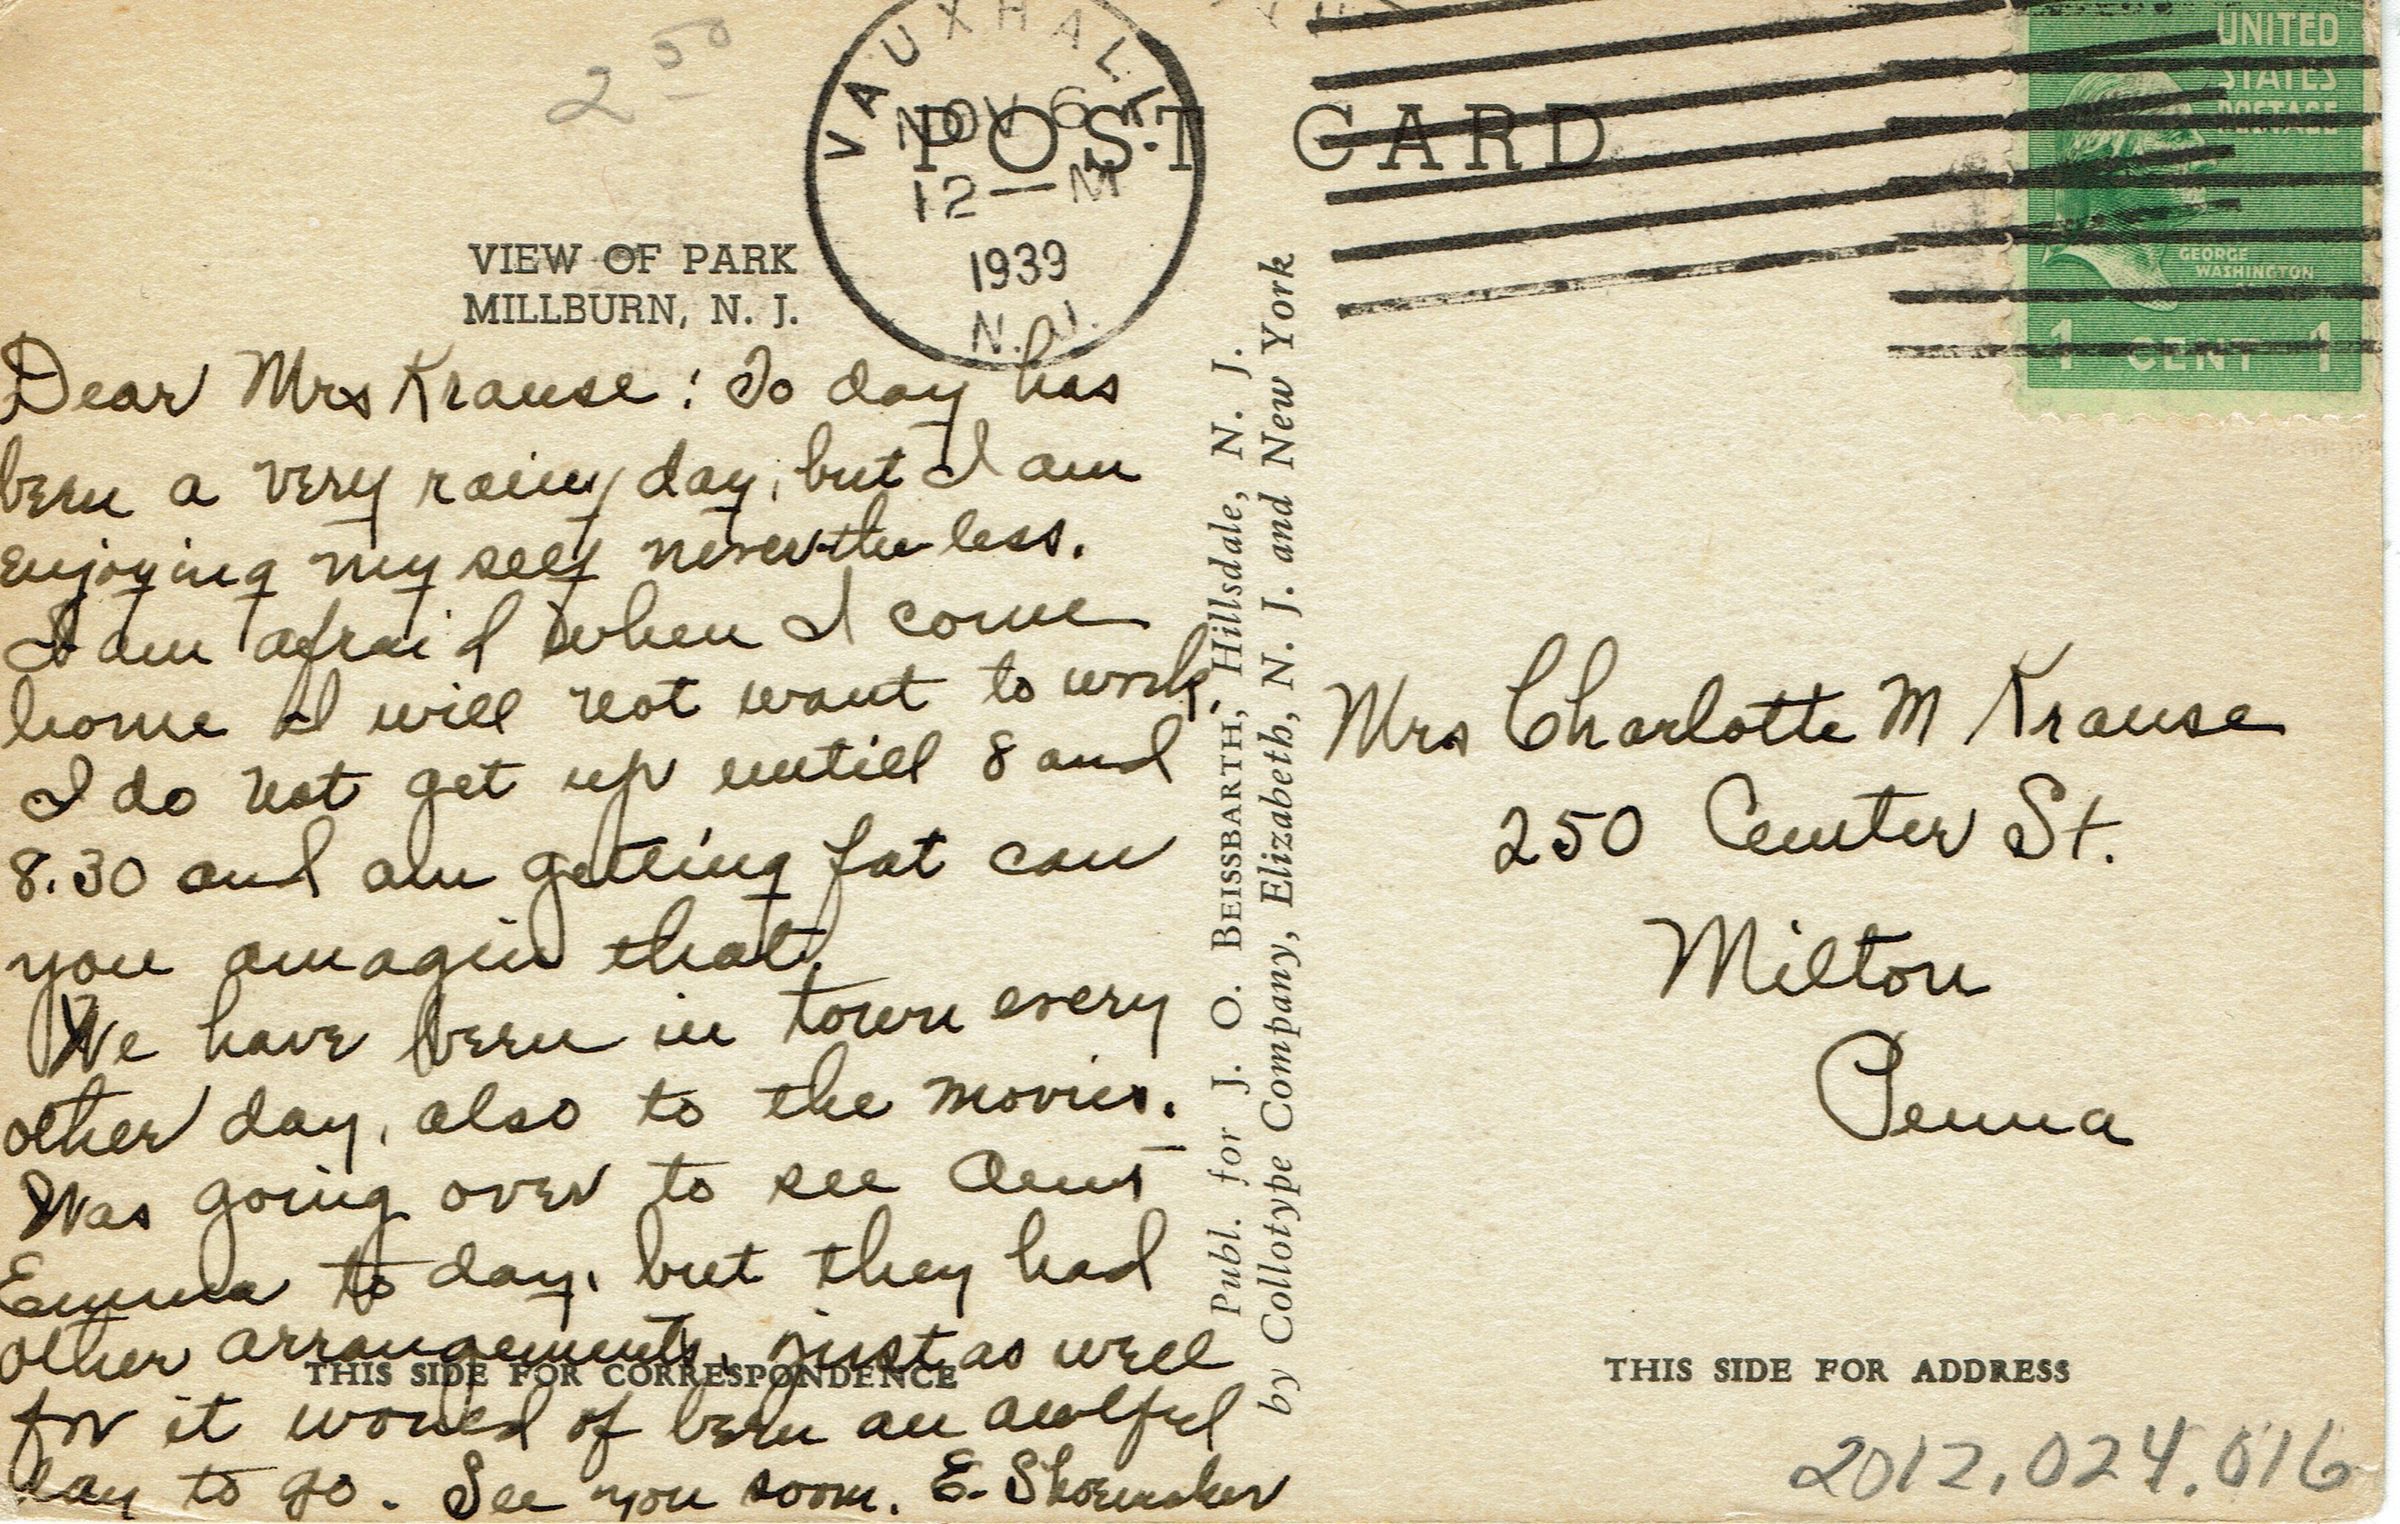 2 50
VAUXHALL
NOV 6
12 — M
1939
N. J.
POST CARD
UNITED
STATES
POSTAGE
GEORGE
WASHINGTON
1 CENT 1
VIEW OF PARK
MILLBURN, N. J.
Dear Mrs Krause: To day has
been a very rainy day, but I am
enjoying my self never-the-less.
I am afraid when I come
home I will not want to work.
I do not get up untill 8 and
8.30 and am getting fat can
you amagin that.
We have been in town every
other day, also to the movies.
Was going over to see Aunt
Emma to day, but they had
other arrangements, just as well
for it would of been an awlful
day to go. See you soon. E. Shoemaker
THIS SIDE FOR CORRESPONDENCE
Publ. for J. O. BEISSBARTH, Hillsdale, N. J.
by Collotype Company, Elizabeth, N. J. and New York
Mrs Charlotte M Krause
250 Center St.
Milton
Penna
THIS SIDE FOR ADDRESS
2012.024.016